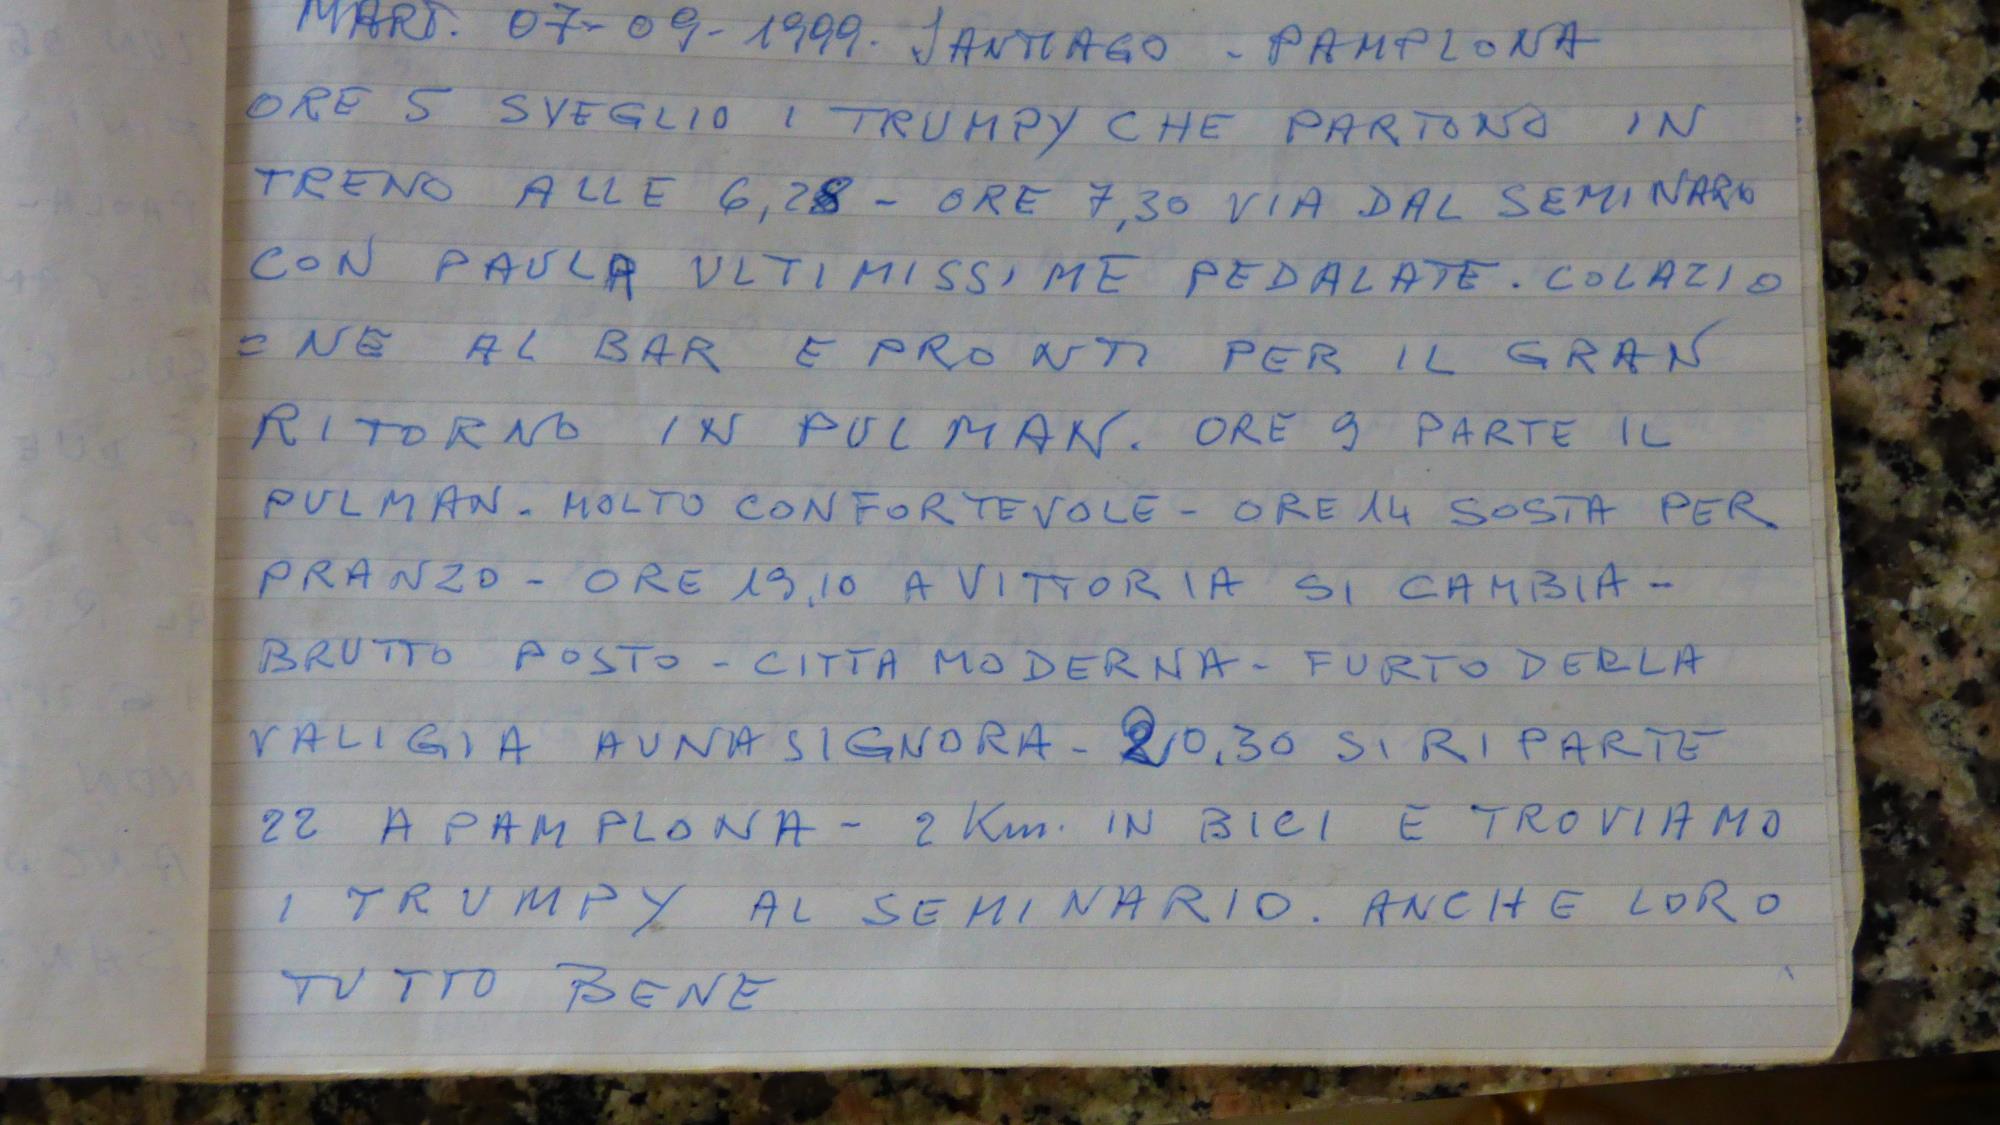 MART. 07-09-1999. SANTIAGO - PAMPLONA
ORE 5 SVEGLIO I TRUMPY CHE PARTONO IN
TRENO ALLE 6,28 - ORE 7,30 VIA DAL SEMINARO
CON PAULA ULTIMISSIME PEDALATE. COLAZIO
=NE AL BAR E PRONTI PER IL GRAN
RITORNO IN PULMAN. ORE 9 PARTE IL
PULMAN. MOLTO CONFORTEVOLE - ORE 14 SOSTA PER
PRANZO - ORE 19,10 A VITTORIA SI CAMBIA -
BRUTTO POSTO - CITTA MODERNA - FURTO DERLA
VALIGIA A UNA SIGNORA - 20,30 SI RIPARTE
22 A PAMPLONA - 2 Km. IN BICI E TROVIAMO
I TRUMPY AL SEMINARIO. ANCHE LORO
TUTTO BENE